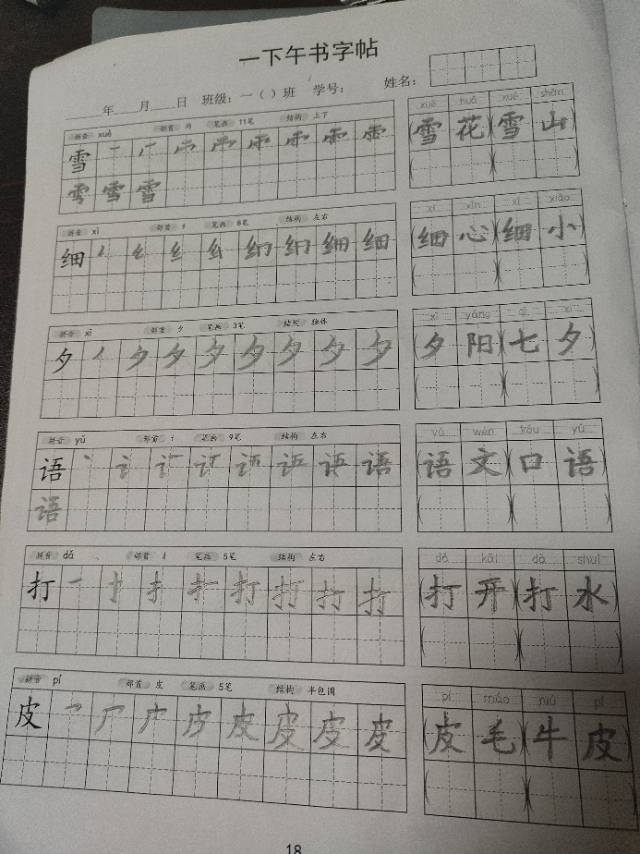 一下午书字帖
年 月 日 班级：一（ ）班 学号： 姓名：
拼音 xuě 部首 雨 笔画 11笔 结构 上下
xuě huā xuě shān
雪 雪 花 雪 山
雪 雪
拼音 xì 部首 纟 笔画 8笔 结构 左右
xì xīn xì xiǎo
细 细 细 心 细 小
拼音 xī 部首 夕 笔画 3笔 结构 独体
xī yáng qī xī
夕 夕 夕 夕 夕 夕 夕 夕 夕 阳 七 夕
拼音 yǔ 部首 讠 笔画 9笔 结构 左右
yǔ wén kǒu yǔ
语 语 语 文 口 语
语
拼音 dǎ 部首 扌 笔画 5笔 结构 左右
dǎ kāi dǎ shuǐ
打 打 打 打 打 打 开 打 水
拼音 pí 部首 皮 笔画 5笔 结构 半包围
pí máo niú pí
皮 皮 皮 皮 皮 皮 毛 牛 皮
18